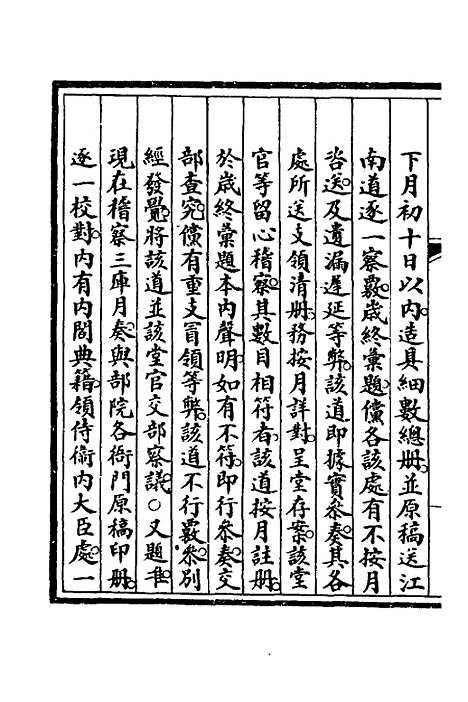 下月初十日以內。造具細數總冊。並原稿送江
南道逐一察覈。歲終彙題。儻各該處有不按月
咨送。及遺漏遲延等弊。該道即據實參奏。其各
處所送支領清冊。務按月詳對。呈堂存案。該堂
官等留心稽察。其數目相符者。該道按月註冊。
於歲終彙題本內聲明。如有不符。即行參奏。交
部查究。儻有重支冒領等弊。該道不行覈參。別
經發覺。將該道並該堂官交部察議。○又題准。
現在稽察三庫月奏。與部院各衙門原稿印冊。
逐一校對。內有內閣典籍。領侍衛內大臣處。一